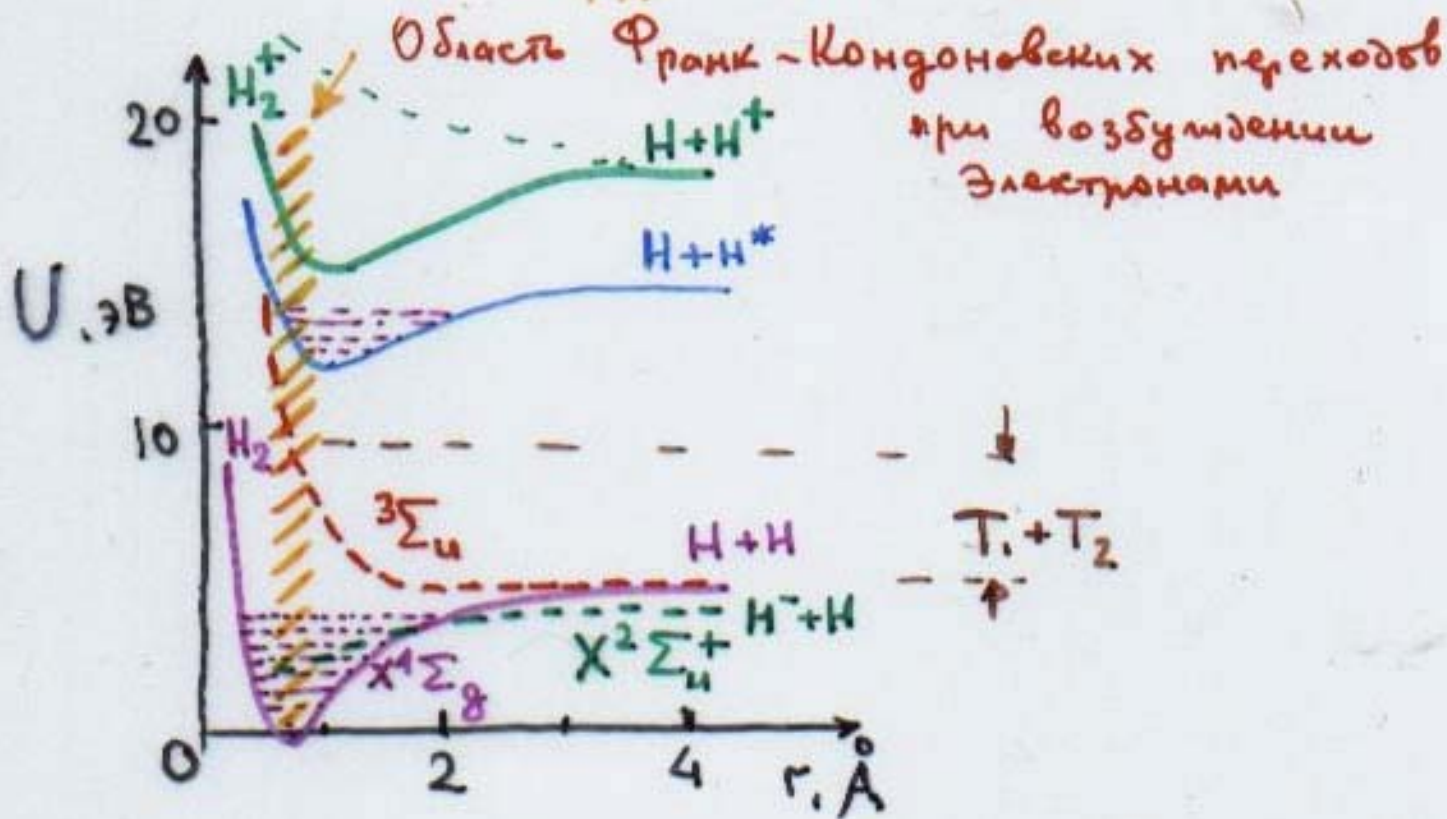 Область Франк-Кондоновских переходов
при возбуждении
Электронами
H₂⁺
20
H+H⁺
U, эВ
H+H*
10
H₂
³Σu
H+H
T₁+T₂
H⁻+H
X²Σu⁺
X¹Σg
0
2
4
r, Å